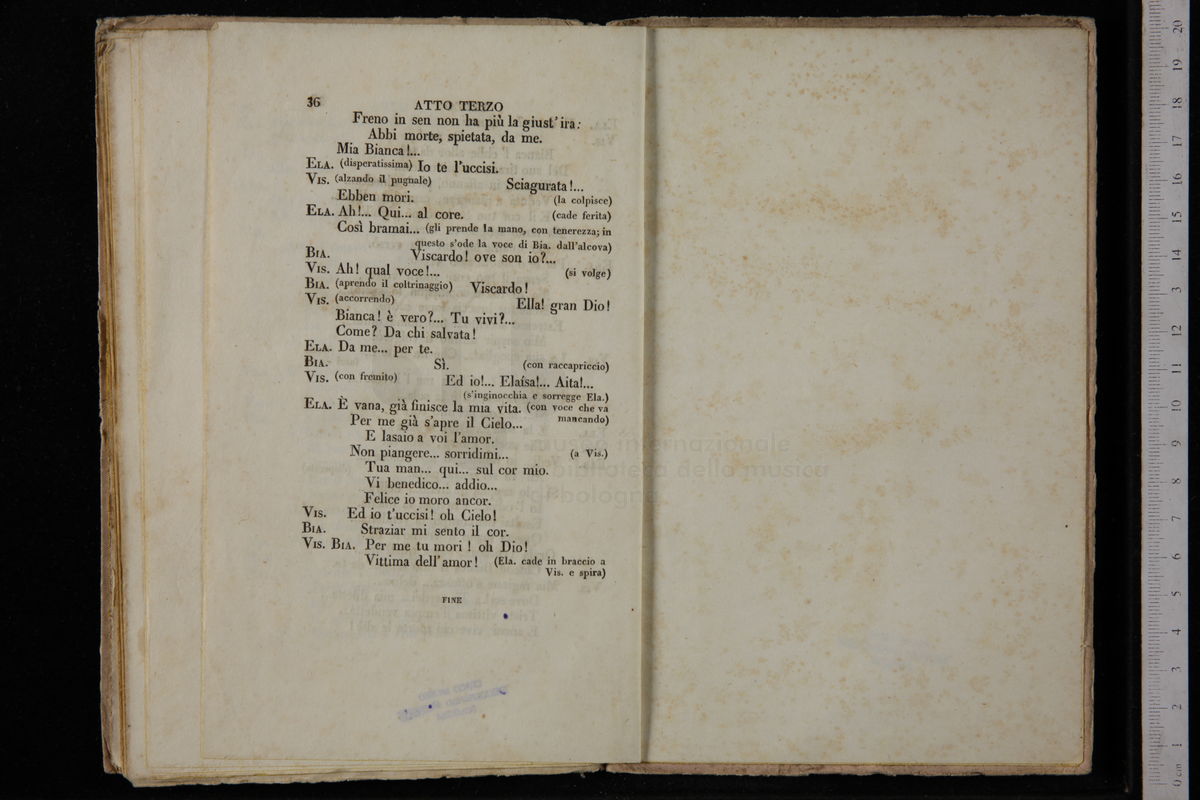 36 ATTO TERZO
Freno in sen non ha più la giust' ira:
Abbi morte, spietata, da me.
Mia Bianca!...
ELA. (disperatissima) Io te l'uccisi.
VIS. (alzando il pugnale) Sciagurata!...
Ebben mori. (la colpisce)
ELA. Ah!... Qui... al core. (cade ferita)
Così bramai... (gli prende la mano, con tenerezza; in
questo s'ode la voce di Bia. dall'alcova)
BIA. Viscardo! ove son io?...
VIS. Ah! qual voce!... (si volge)
BIA. (aprendo il coltrinaggio) Viscardo!
VIS. (accorrendo) Ella! gran Dio!
Bianca! è vero?... Tu vivi?...
Come? Da chi salvata!
ELA. Da me... per te.
BIA. Sì. (con raccapriccio)
VIS. (con fremito) Ed io!... Elaísa!... Aita!...
(s'inginocchia e sorregge Ela.)
ELA. È vana, già finisce la mia vita. (con voce che va
mancando)
Per me già s'apre il Cielo...
E lasaio a voi l'amor.
Non piangere... sorridimi... (a Vis.)
Tua man... qui... sul cor mio.
Vi benedico... addio...
Felice io moro ancor.
VIS. Ed io t'uccisi! oh Cielo!
BIA. Straziar mi sento il cor.
VIS. BIA. Per me tu mori! oh Dio!
Vittima dell'amor! (Ela. cade in braccio a
Vis. e spira)
FINE
museo internazionale
biblioteca della musica
di bologna
0 cm 1 2 3 4 5 6 7 8 9 10 11 12 13 14 15 16 17 18 19 20